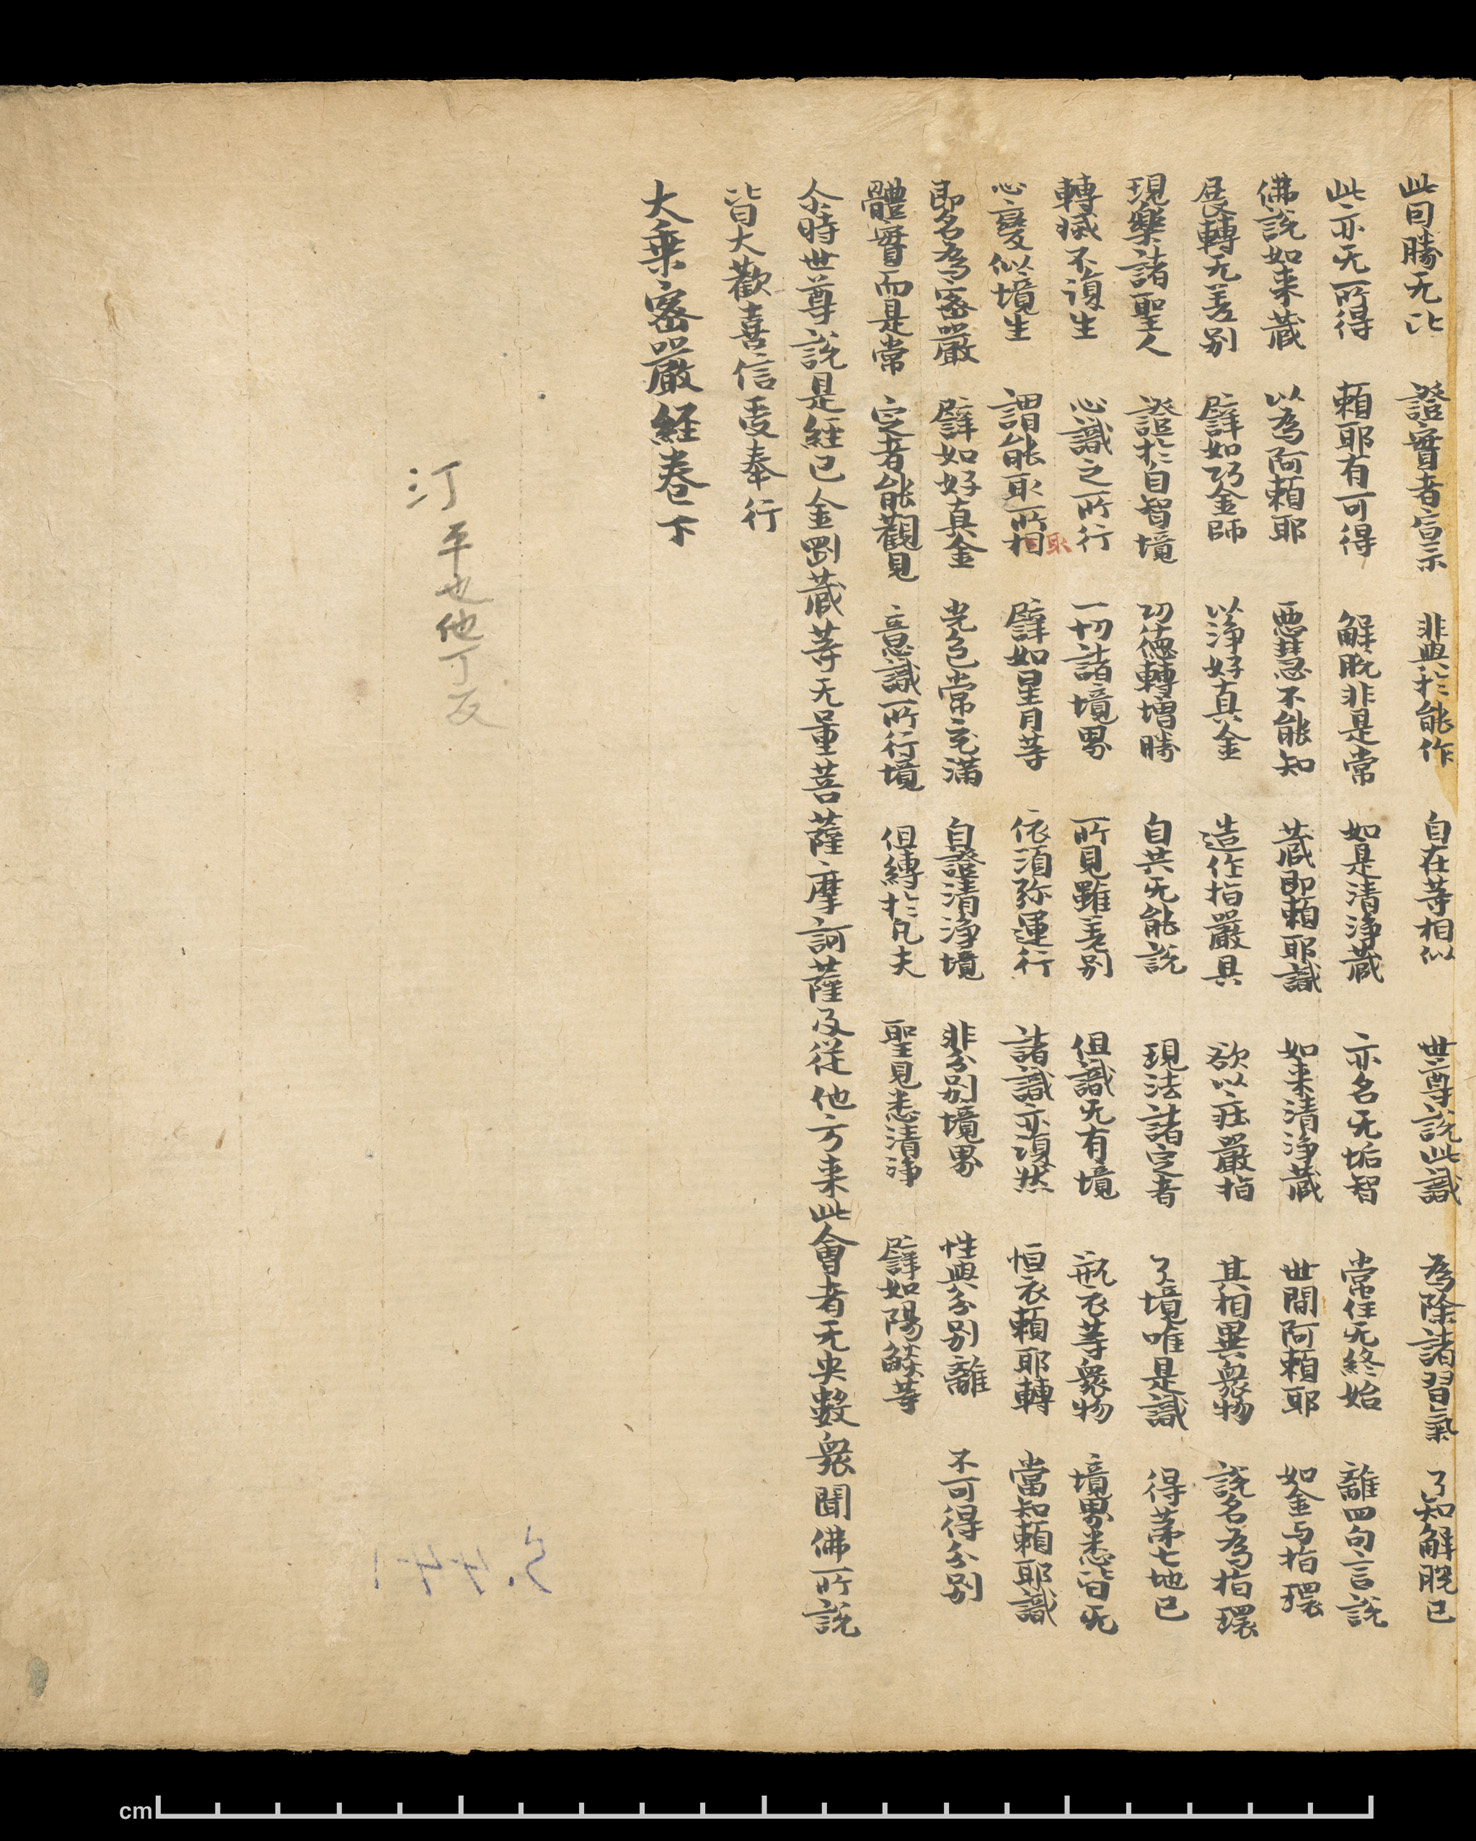 此因勝无比 證實者宣示 非與於能作 自在等相似 世尊說此識 為除諸習氣 了知解脫已
此亦无所得 賴耶有可得 解脫非是常 如是清淨藏 亦名无垢智 常住无終始 離四句言說
佛說如来藏 以為阿賴耶 惡慧不能知 藏即賴耶識 如来清淨藏 世間阿賴耶 如金与指環
展轉无差別 譬如巧金師 以淨好真金 造作指嚴具 欲以莊嚴指 其相異衆物 說名為指環
現樂諸聖人 證於自智境 功德轉增勝 自共无能說 現法諸定者 了境唯是識 得苐七地已
轉滅不復生 心識之所行 一切諸境界 所見雖差別 但識无有境 瓶衣等衆物 境界悉皆无
心變似境生 謂能取所相 譬如星月等 依須弥運行 諸識亦復然 恒衣賴耶轉 當知賴耶識
取
即名為密嚴 譬如好真金 光色常充滿 自證清淨境 非分別境界 性與分別離 不可得分別
體實而是常 定者能觀見 意識所行境 但縛於凡夫 聖見悉清淨 譬如陽燄等
尒時世尊說是經已金剛藏等无量菩薩摩訶薩及從他方来此會者无央數衆聞佛所說
皆大歡喜信受奉行
大乘密嚴經卷下
汀 平也他丁反
S.441